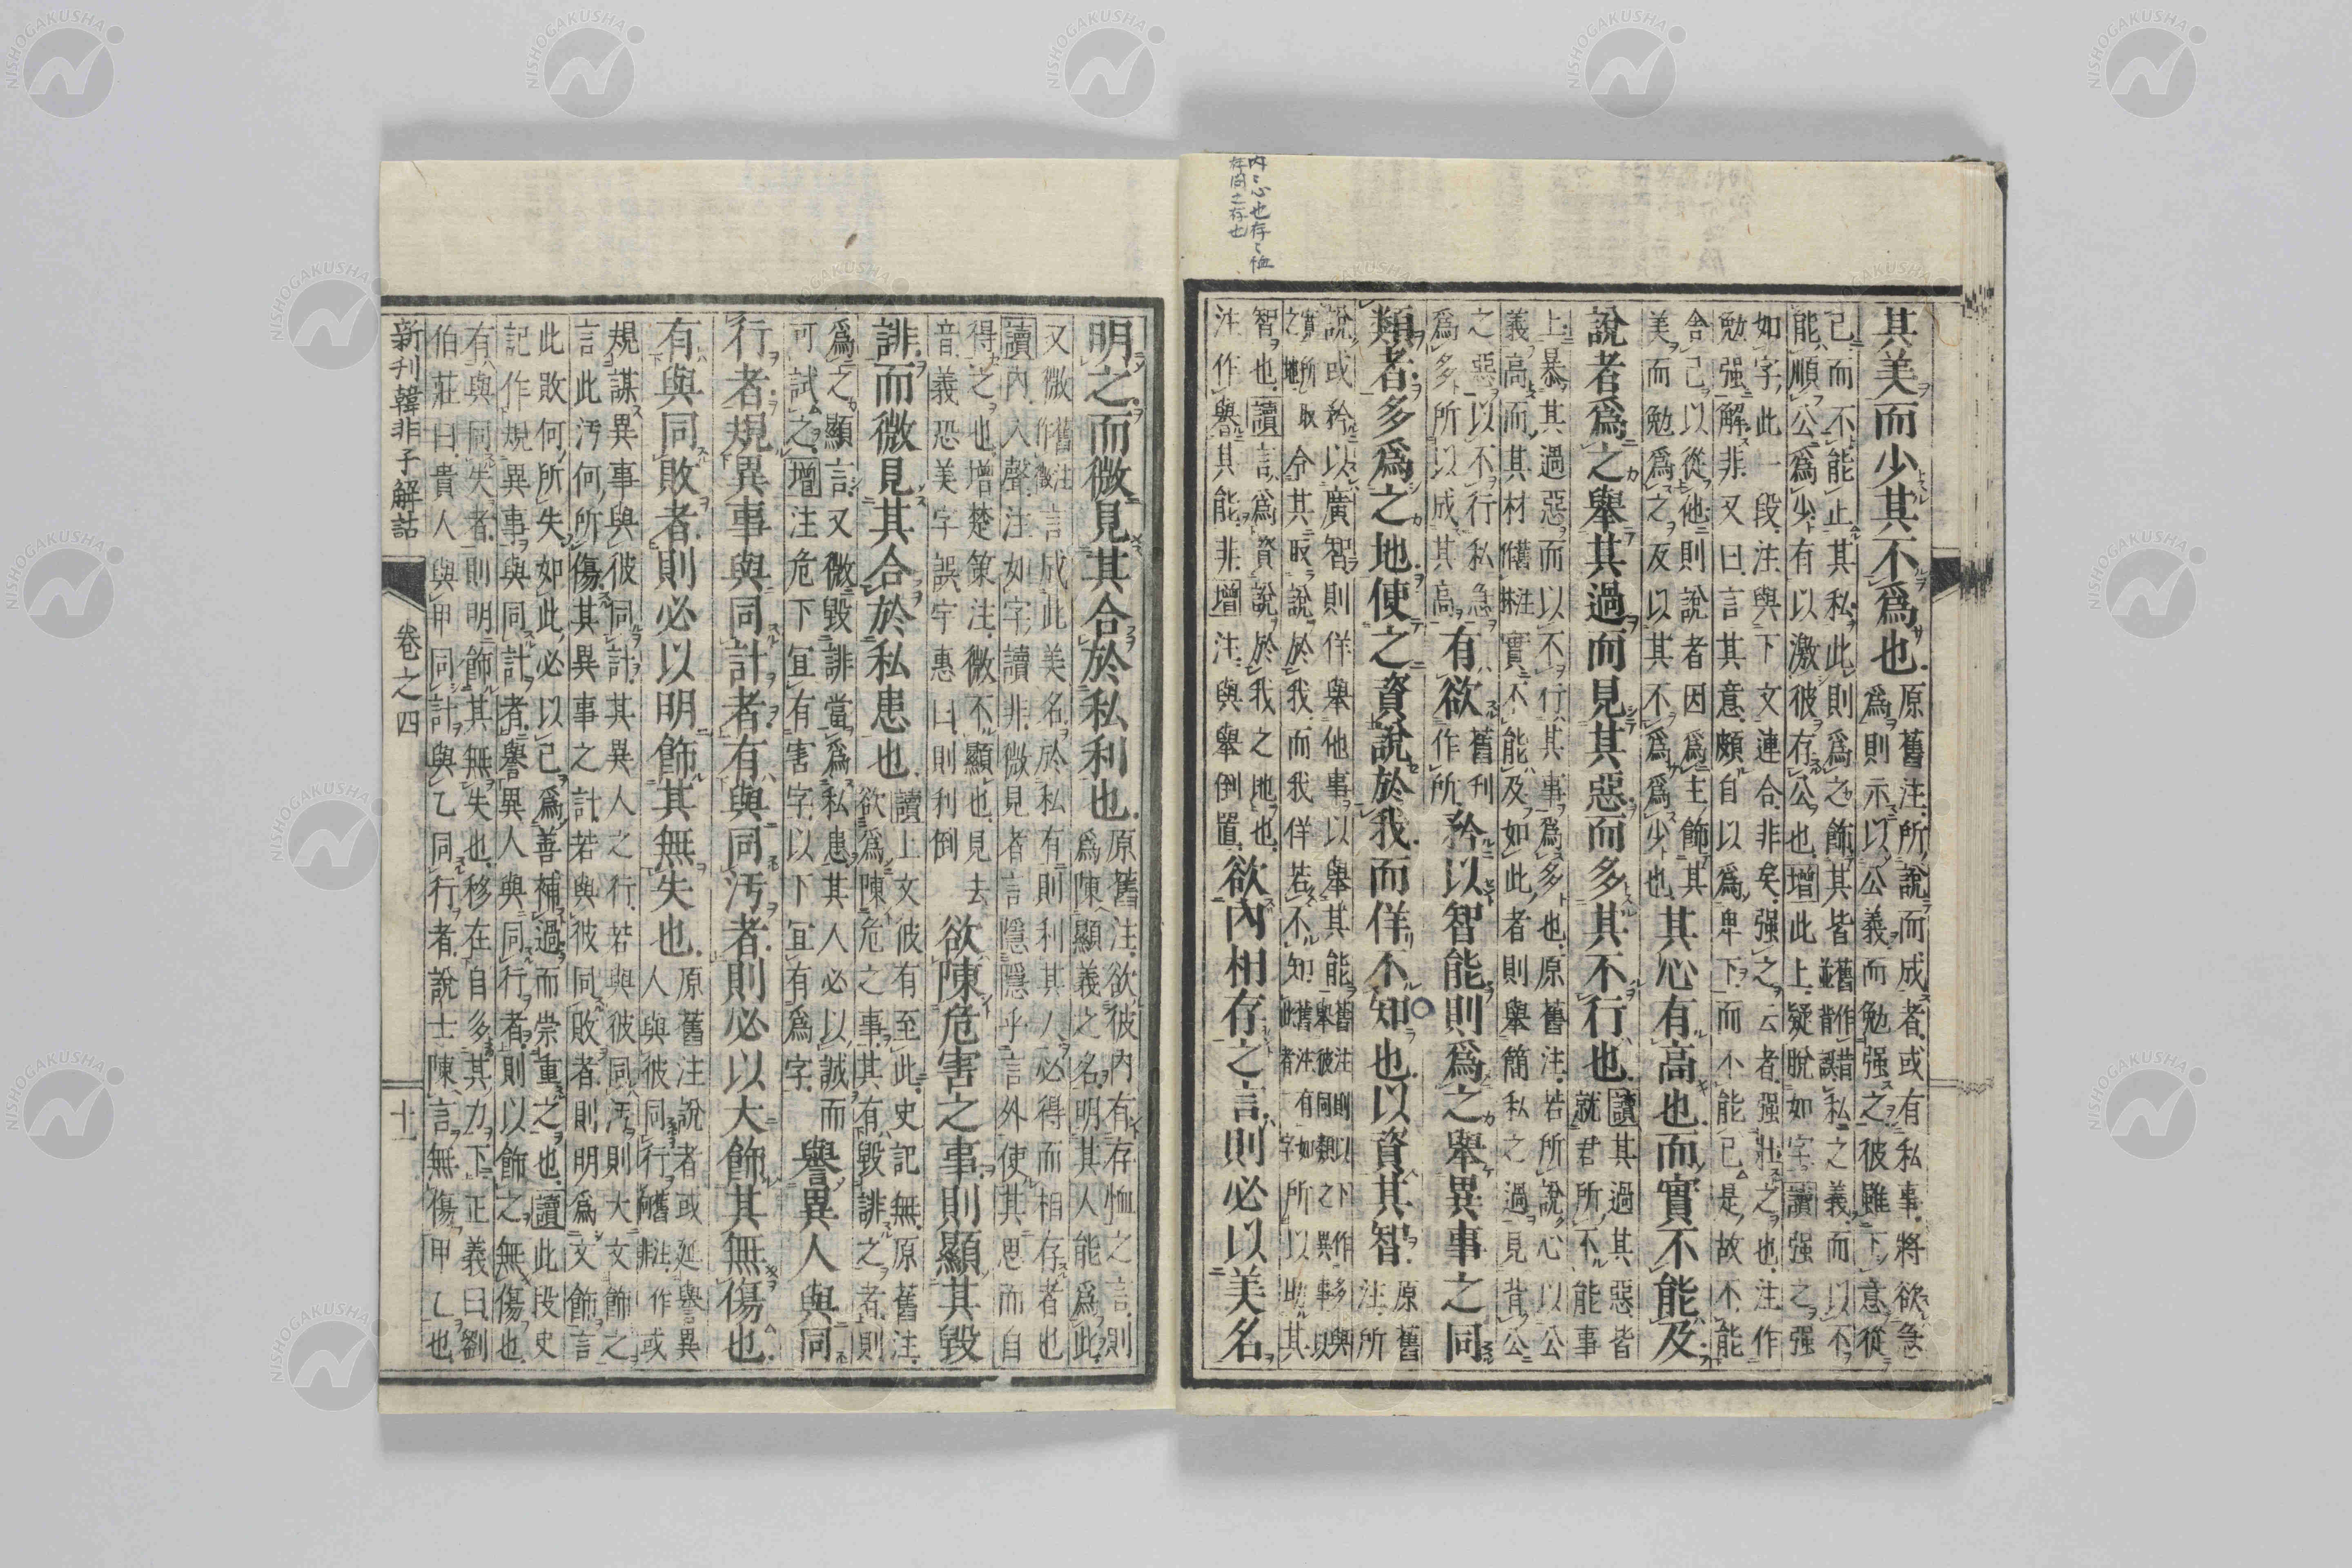 内〻心也存〻恤
存問之存也
其美而少其不爲也 原舊注所說而成者或有私事將欲急
爲則示以公義而勉强之彼雖下意從
己而不能止其私此則爲之飾其皆舊作並背誤私之義而以不
能順公爲少有以激彼存公也增此上疑脫如字讀强之强
如字此一段注與下文連合非矣强之云者强壯之也注作
勉强解非又曰言其意頗自以爲卑下而不能已是故不能
舍己以從他則說者因爲主飾其
美而勉爲之及以其不爲爲少也 其心有高也而實不能及
說者爲之舉其過而見其惡而多其不行也 讀其過其惡皆
就君所不能事
上暴其過惡而以不行其事爲多也原舊注若所說心以公
義高而其材舊注作林實不能及如此者則舉簡私之過見背公
之惡以不行私急
爲多所以成其高 有欲舊刊作所矜以智能則爲之舉異事之同
類者多爲之地使之資說於我而佯不知也以資其智 原舊
注所
說或矜以廣智則佯舉他事以舉其能舊注則以下作多與舉彼同類之異事以
之實所地取令其取說於我而我佯若不知舊注有如此者字所以助其
智也讀言爲資說於我之地也
注作譽其能非增注與舉倒置 欲內相存之言則必以美名
明之而微見其合於私利也 原舊注欲彼內有存恤之言則
爲陳顯義之名明其人能爲此
又微舊注作徵言成此美名於私有則利其人必得而相存者也
讀內入聲注如字讀非微見者言隱隱乎言外使其思而自
得之也增楚策注微不顯也見去
音義恐美字誤字惠曰則利倒 欲陳危害之事則顯其毀
誹而微見其合於私患也 讀上文彼有至此史記無原舊注
欲爲陳危之事其有毀誹之者則
爲之顯言又微毀誹當爲私患其人必以誠而
可試之增注危下宜有害字以下宜有爲字 譽異人與同
行者規異事與同計者有與同汚者則必以大飾其無傷也
有與同敗者則必以明飾其無失也 原舊注說者或延譽異
人與彼同行舊注作或非
規謀異事與彼同計其異人之行若與彼同汚則大文飾之
言此汚何所傷其異事之計若與彼同敗者則明爲文飾言
此敗何所失如此必以己爲善補過而崇重之也讀此段史
記作規異事與同計者譽異人與同行者則以飾之無傷也
有與同失者則明飾其無失也移在自多其力下正義曰劉
伯莊曰貴人與甲同計與乙同行者說士陳言無傷甲乙也
新刊韓非子解詁 卷之四 十一